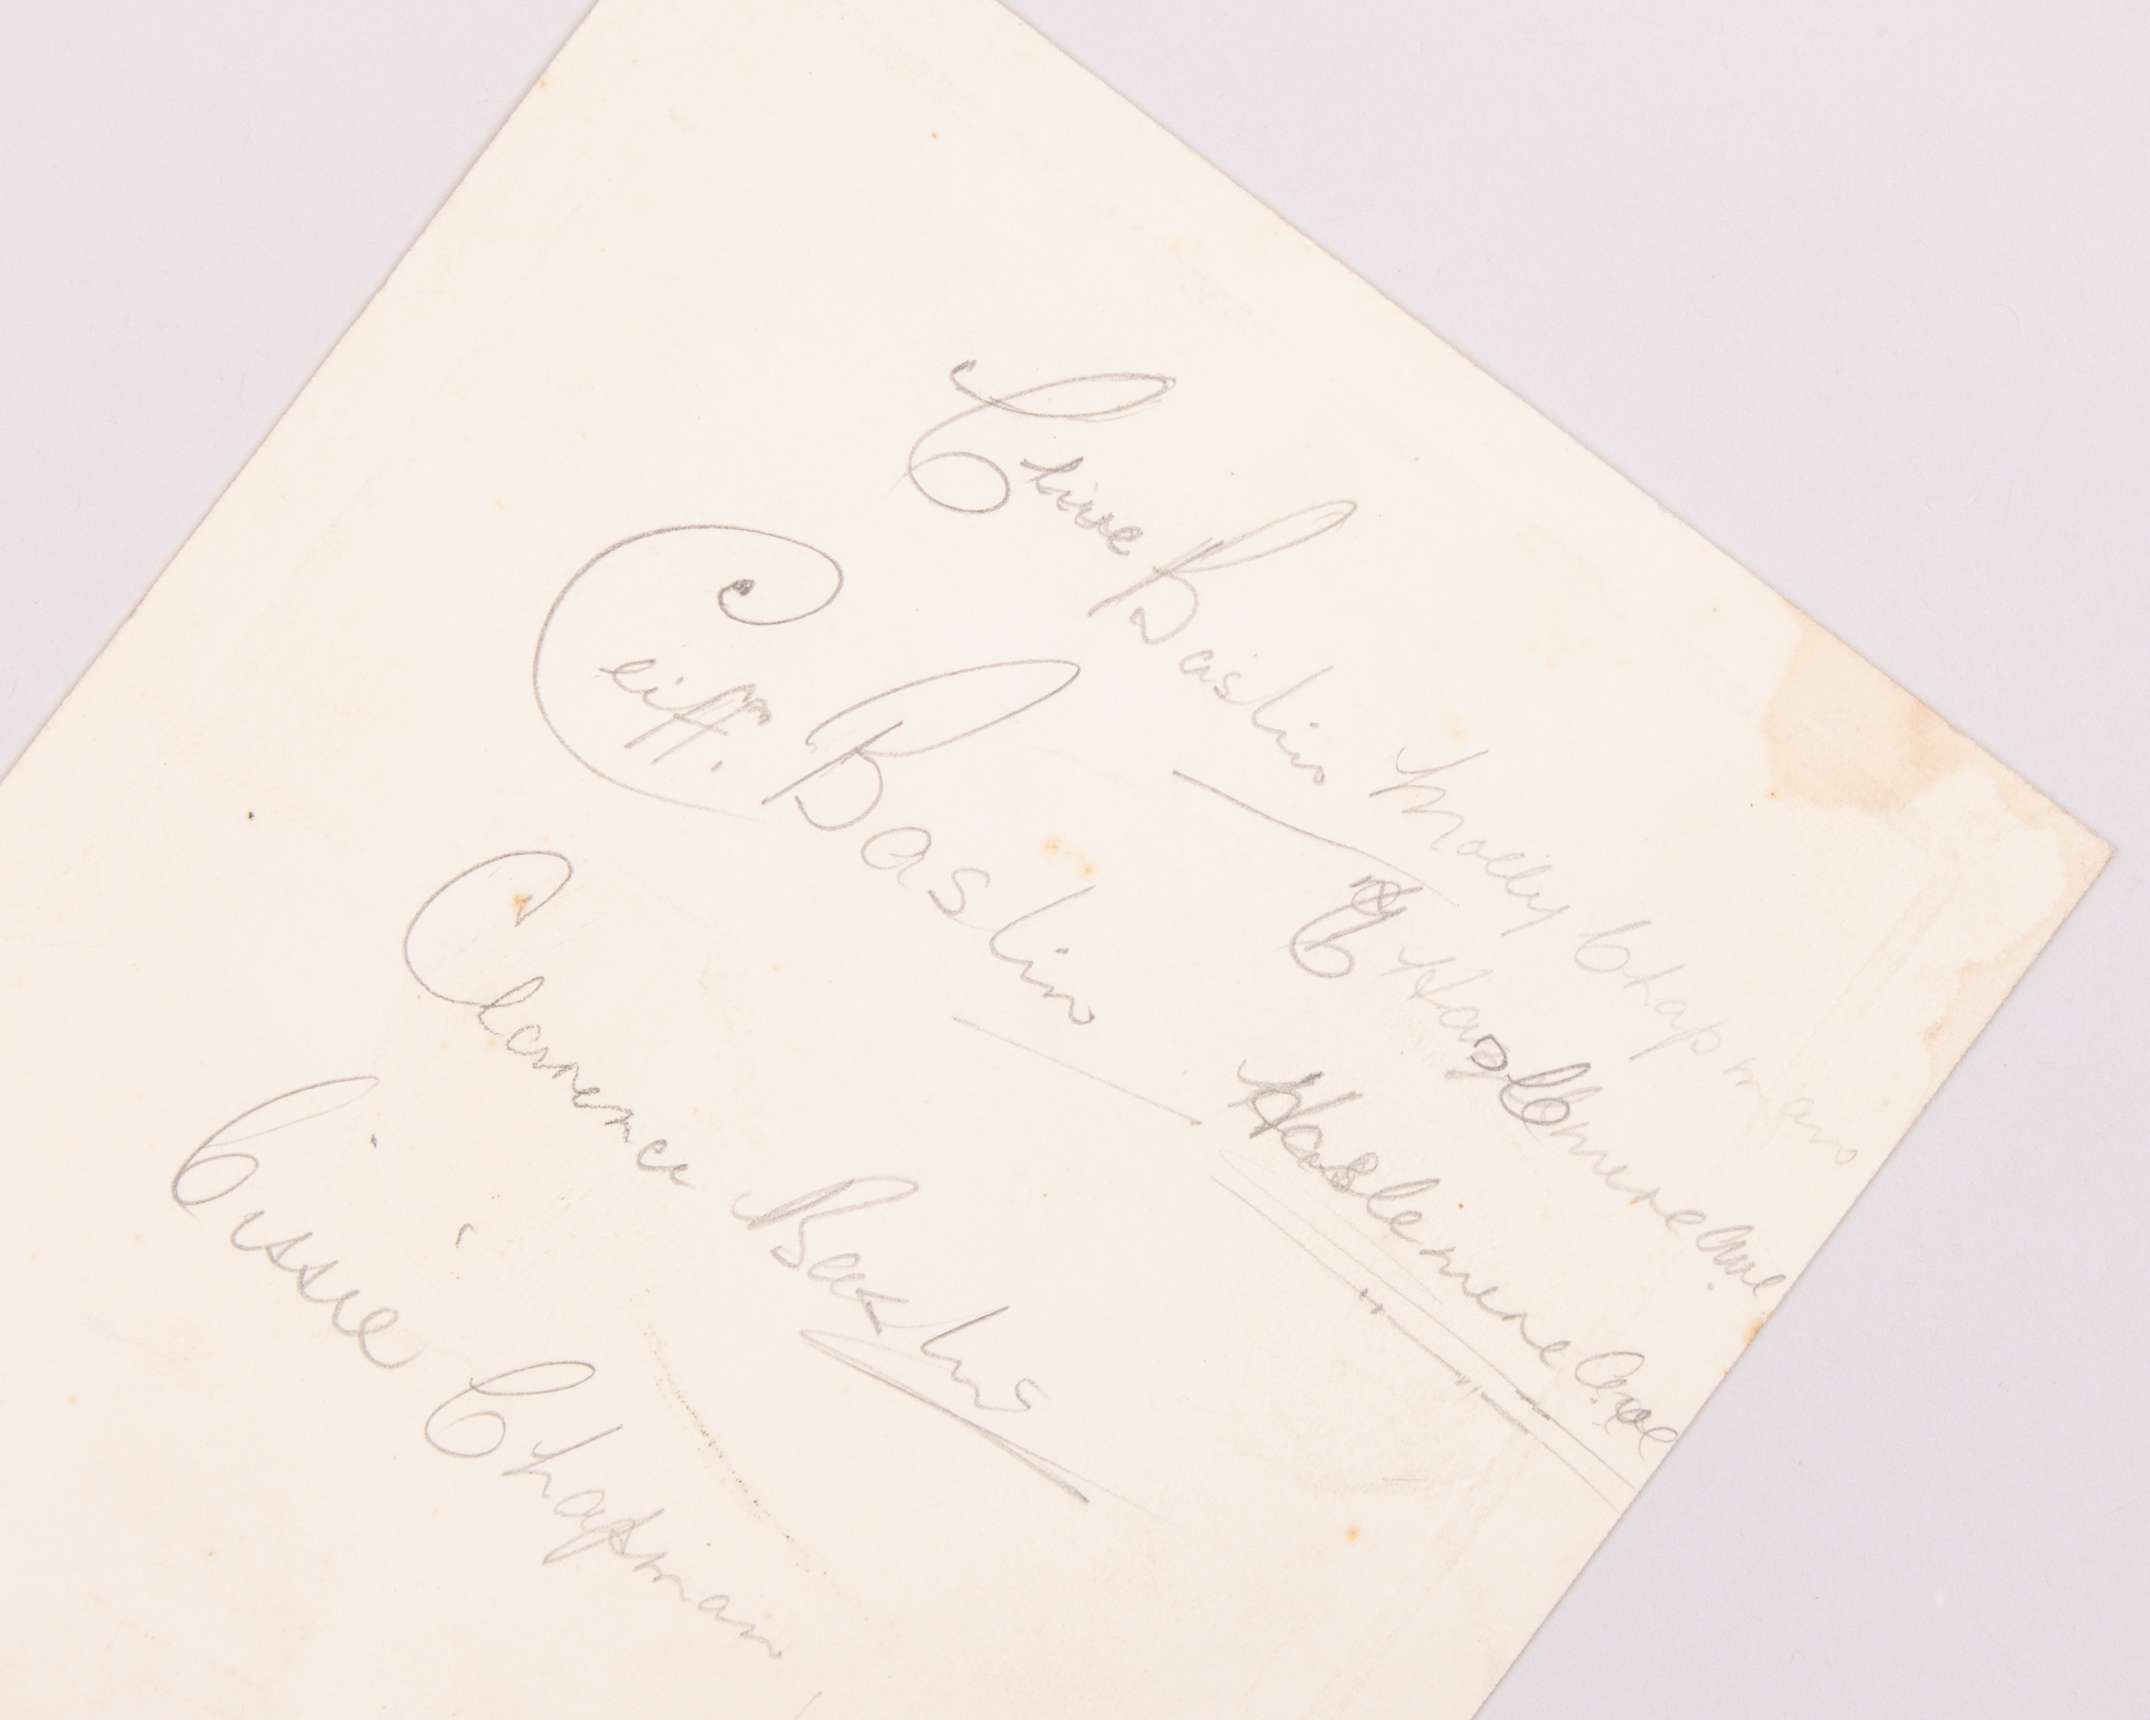 Clive Baslin
Molly Chapman
Cliff. Baslin
Haslemere Ave
Clarence
Haslemere Ave
Cissie Chapman